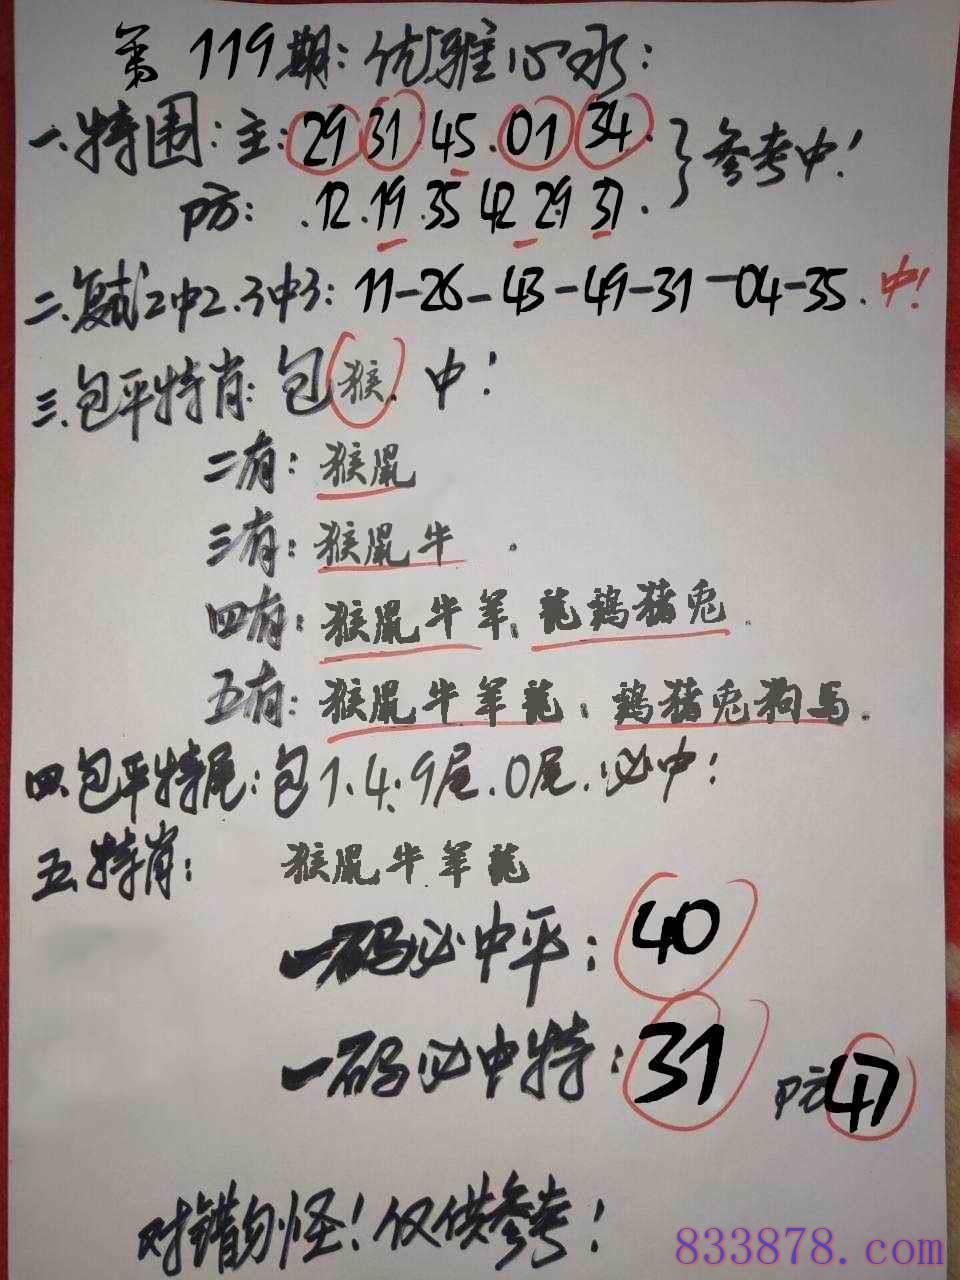 第119期：优雅心水：
一.特围：主：29 31 45.01 34. 参考中！
防：.12.19.35 42 29 37.
二.复试2中2.3中3：11-26-43-49-31-04-35.中！
三.包平特肖：包猴.中！
二有：猴鼠
三有：猴鼠牛.
四有：猴鼠牛羊.龙鸡猪兔.
五有：猴鼠牛羊龙：鸡猪兔狗马.
四.包平特尾：包1.4.9尾.0尾.必中！
五.特肖：猴鼠牛羊龙
一码必中平：40
一码必中特：31 防47
对错勿怪！仅供参考！
833878.com